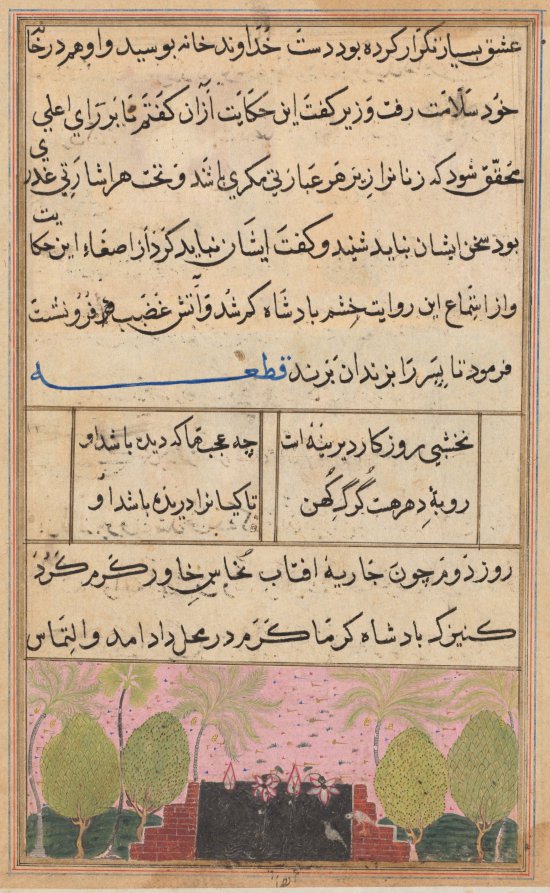 عشق بسیار تکرار کرده بود دست خداوند خانه بوسید و او هم در خانهٔ
خود سلامت رفت وزیر کفت این حکایت ازان کفتم تا بر رای اعلی
محقق شود که زنانرا زیر هر عبارتی مکری باشد و تحت هر اشارتی غدری
بود سخن ایشان نباید شنید و کفت ایشان نباید کرد از اصغاء این حکایت
و از استماع این روایت خشم بادشاه کم شد و آتش غضب هم فرو نشست
فرمود تا پسر را بزندان بزند قطعه
نخشبی روزکار دیرینه است چه عجبها که دیده باشد او
روبهٔ دهر هست گرگ کهن تا کیانرا دریده باشد او
روز دوم چون جاریهٔ افتاب نخاس خاور کرم کرد
کنیزک بادشاه کرما کرم در محل داد امد و التماس